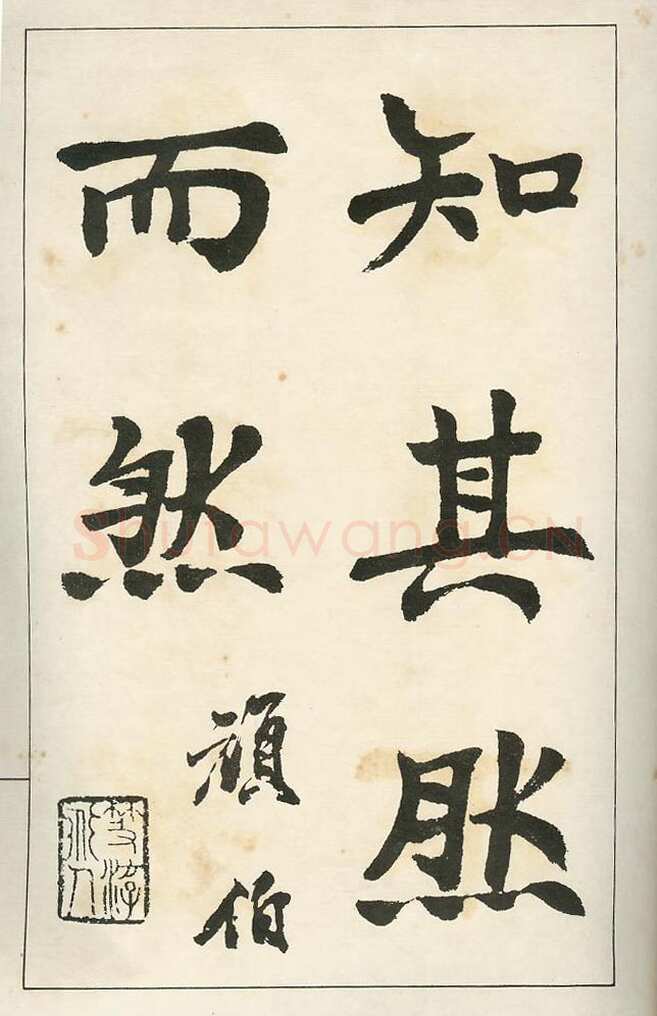 知其然
而然
頑伯
Shufawang.CN